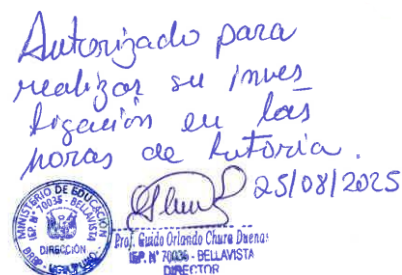 Autorizado para
realizar su inves
tigación en las
horas de tutoria.
25/08/2025
MINISTERIO DE EDUCACIÓN
IEP. N° 70035 - BELLAVISTA
DIRECCIÓN
Prof. Guido Orlando Chura Duenas
IEP. N° 70035 - BELLAVISTA
DIRECTOR